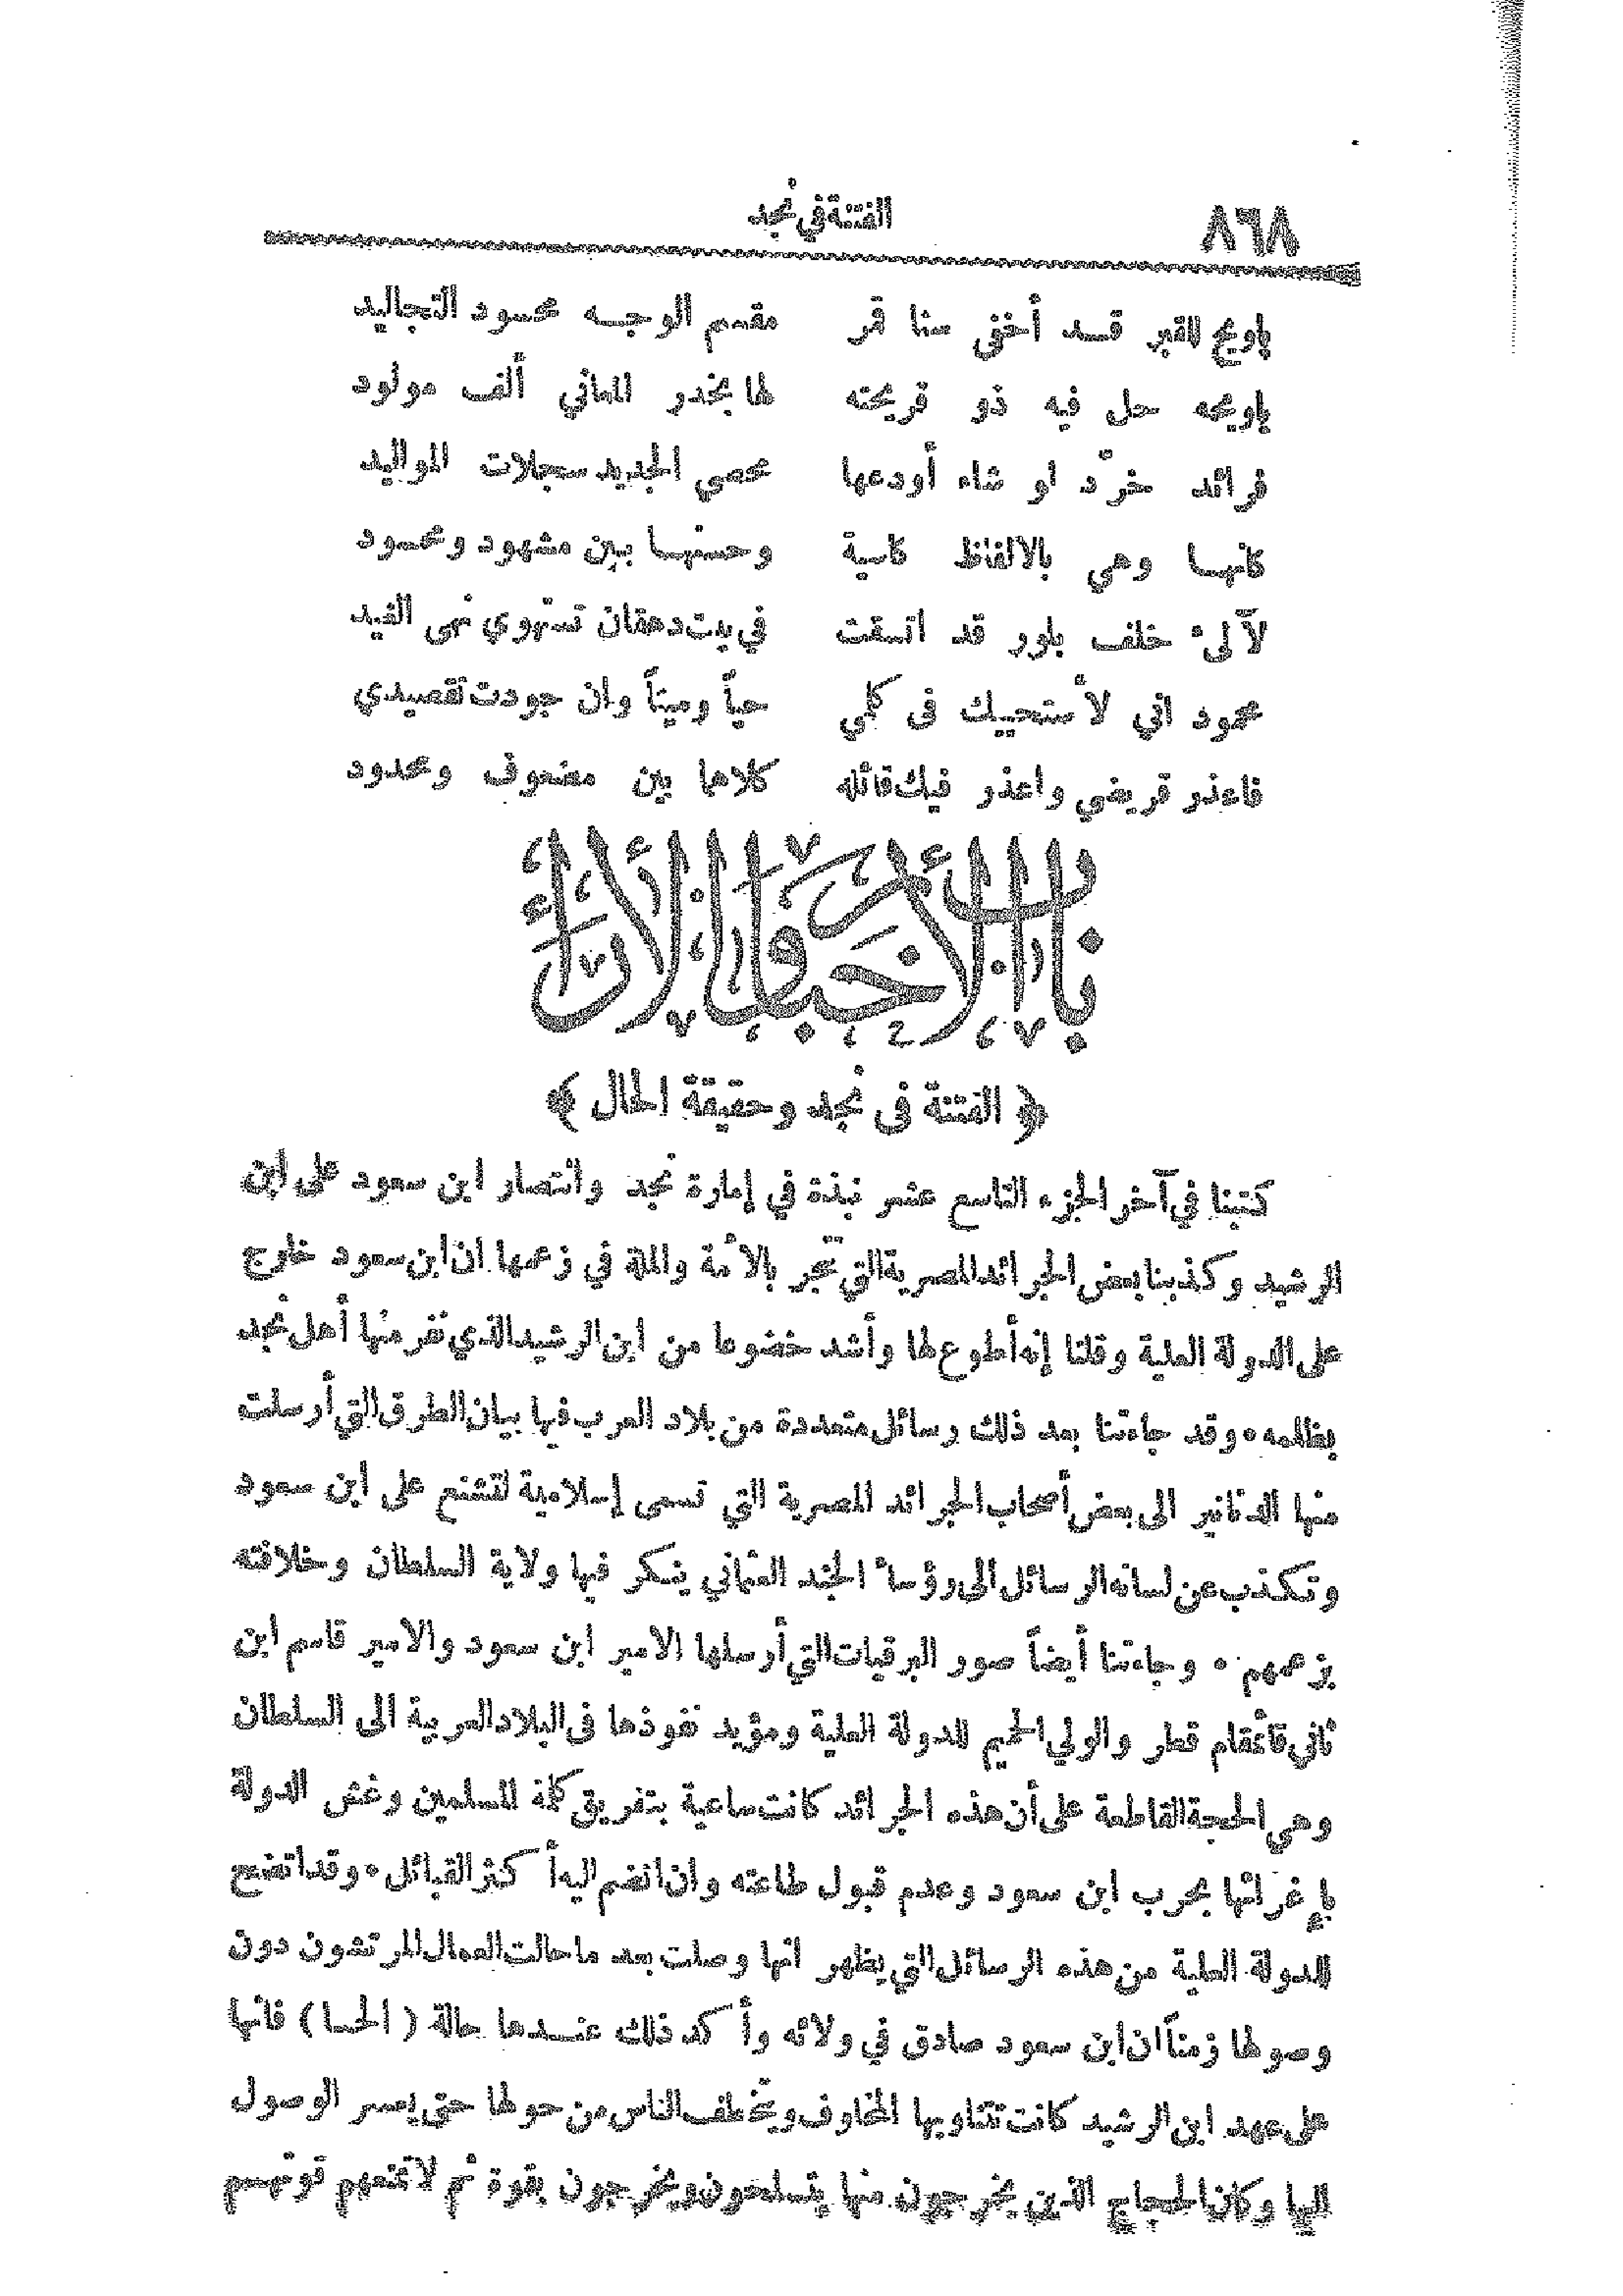 ٨٦٨
الفتنة في نجد
ياويح للقبر قد أخفى سنا قمر مقسم الوجه محسود التجاليد
ياويحه حل فيه ذو قريحته لها بخدر المعاني ألف مولود
فرائد خرّد لو شاء أودعها محصي الجديد سجلات المواليد
كانها وهي بالالفاظ كاسية وحسنها بين مشهود ومحسود
لآلئ خلف بلور قد اتسقت في بيت دهقان تستهوي نهى الغيد
محمود اني لأستحييك فى كلمي حياً وميتاً وان جودت تقصيدي
فاعذر قريضي واعذر فيك قائله كلاهما بين مضعوف ومحدود
باب الأخبار والآراء
﴿ الفتنة فى نجد وحقيقة الحال ﴾
كتبنا في آخر الجزء التاسع عشر نبذة في إمارة نجد وانتصار ابن سعود على ابن
الرشيد وكذبنا بعض الجرائد المصرية التي تتّجر بالأمة والملة في زعمها ان ابن سعود خارج
على الدولة العلية وقلنا إنه أطوع لها وأشد خضوعا من ابن الرشيد الذي نفر منها أهل نجد
بظلمه ٠ وقد جاءتنا بعد ذلك رسائل متعددة من بلاد العرب فيها بيان الطرق التي أرسلت
منها الدنانير الى بعض أصحاب الجرائد المصرية التي تسمى إسلامية لتشنع على ابن سعود
وتكذب عن لسانه الرسائل الى رؤساء الجند العثماني ينكر فيها ولاية السلطان وخلافته
بزعمهم ٠ وجاءتنا أيضاً صور البرقيات التي أرسلها الامير ابن سعود والامير قاسم ابن
ثاني قائمقام قطر والولي الحميم للدولة العلية ومؤيد نفوذها فى البلاد العربية الى السلطان
وهي الحجة القاطعة على أن هذه الجرائد كانت ساعية بتفريق كلمة المسلمين وغش الدولة
بإغرائها بحرب ابن سعود وعدم قبول طاعته وان انضم اليه أكثر القبائل ٠ وقد اتضح
للدولة العلية من هذه الرسائل التي يظهر انها وصلت بعد ما حالت العمال المرتشون دون
وصولها زمناً ان ابن سعود صادق في ولائه وأكد ذلك عندها حالة ( الحسا ) فانها
على عهد ابن الرشيد كانت تتناوبها المخاوف ويتخطف الناس من حولها حتى يعسر الوصول
اليها وكان الحجاج الذين يخرجون منها يتسلحون ويخرجون بقوة ثم لا تمنعهم قوتهم